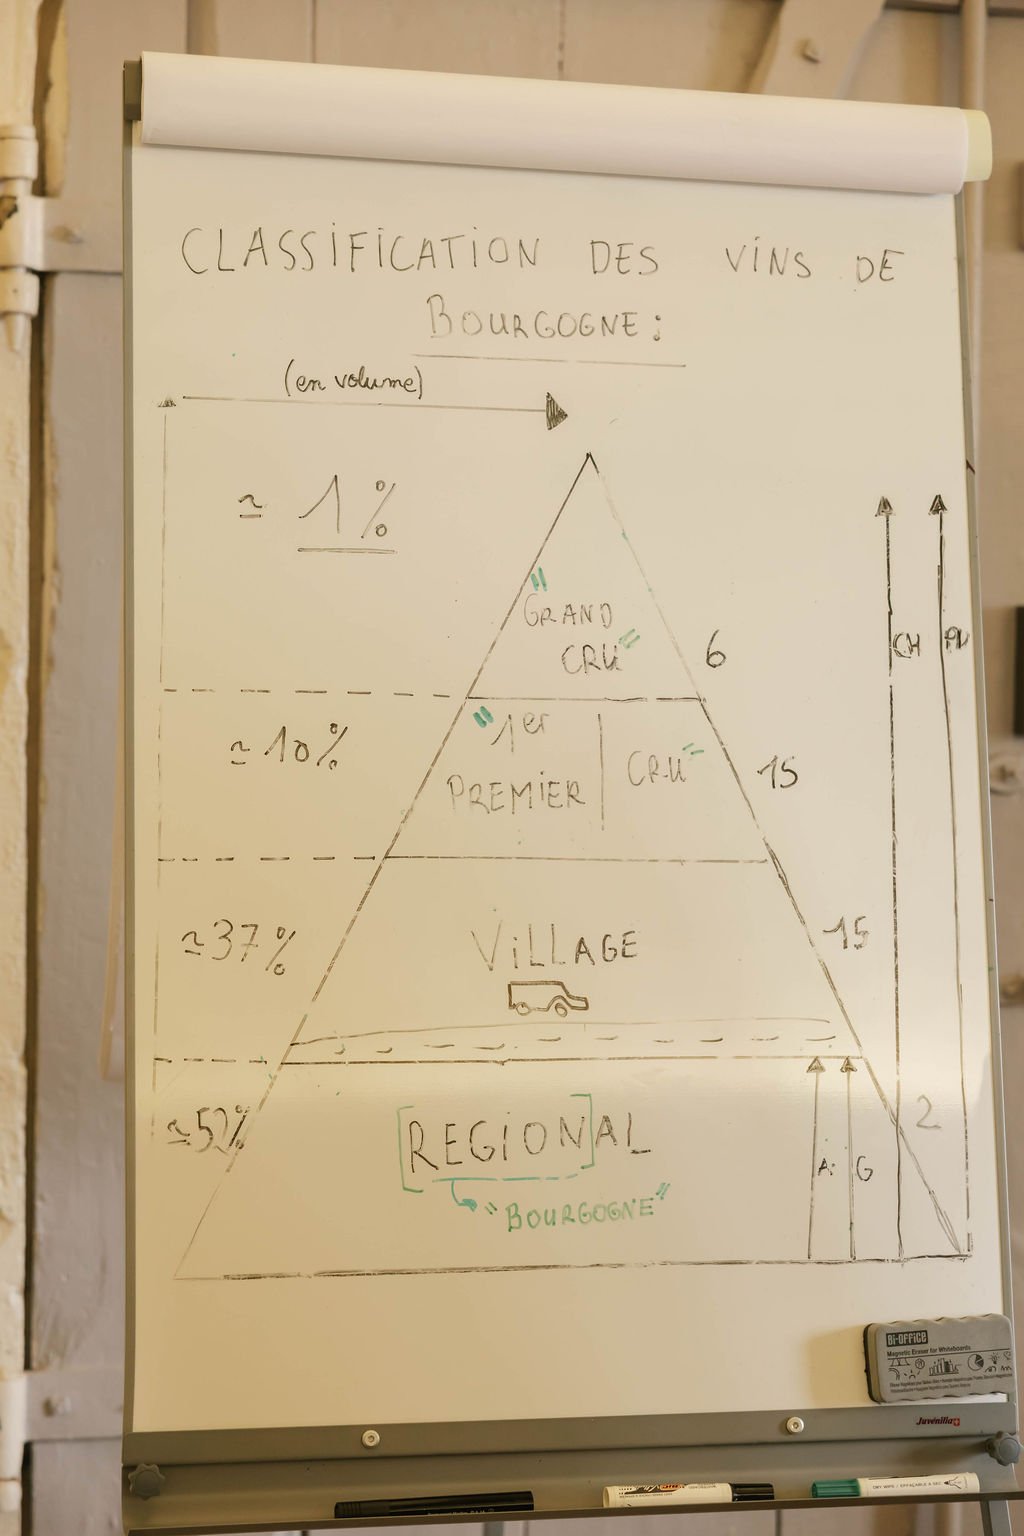 CLASSIFICATION DES VINS DE
BOURGOGNE :
(en volume)
≃ 1%
"GRAND
CRU"
6
CH
PN
≃ 10%
"1er
PREMIER
CRU"
15
≃ 37%
VILLAGE
15
≃ 52%
[REGION]AL
"BOURGOGNE"
A.
G
2
Bi-OFFiCE
Magnetic Eraser for Whiteboards
Juvenilia
DRY-WIPE / EFFAÇABLE A SEC